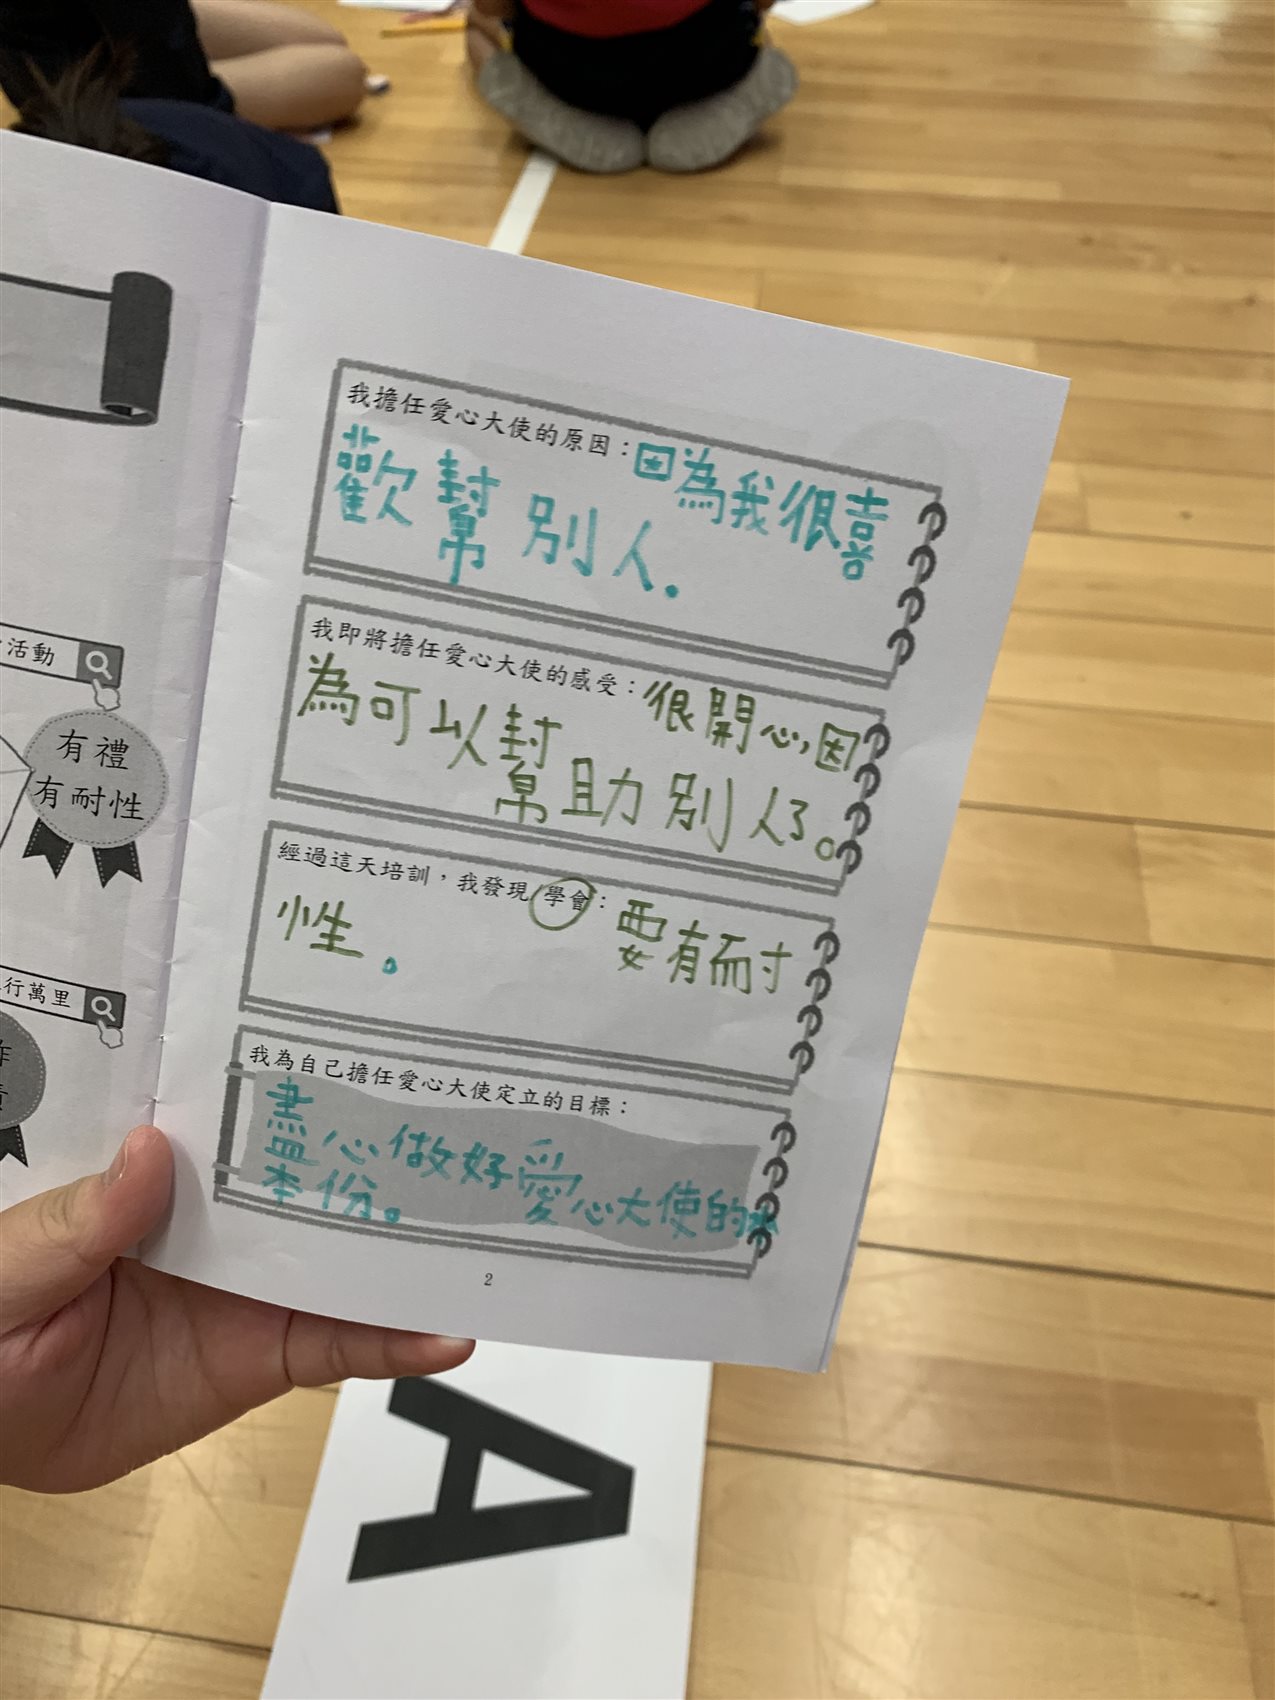 活動
有禮
有耐性
行萬里
我擔任愛心大使的原因：因為我很喜
歡幫別人.
我即將擔任愛心大使的感受：很開心,因
為可以幫助別人了。
經過這天培訓，我發現/學會：要有耐
性。
我為自己擔任愛心大使定立的目標：
盡心做好愛心大使的
本份。
2
A